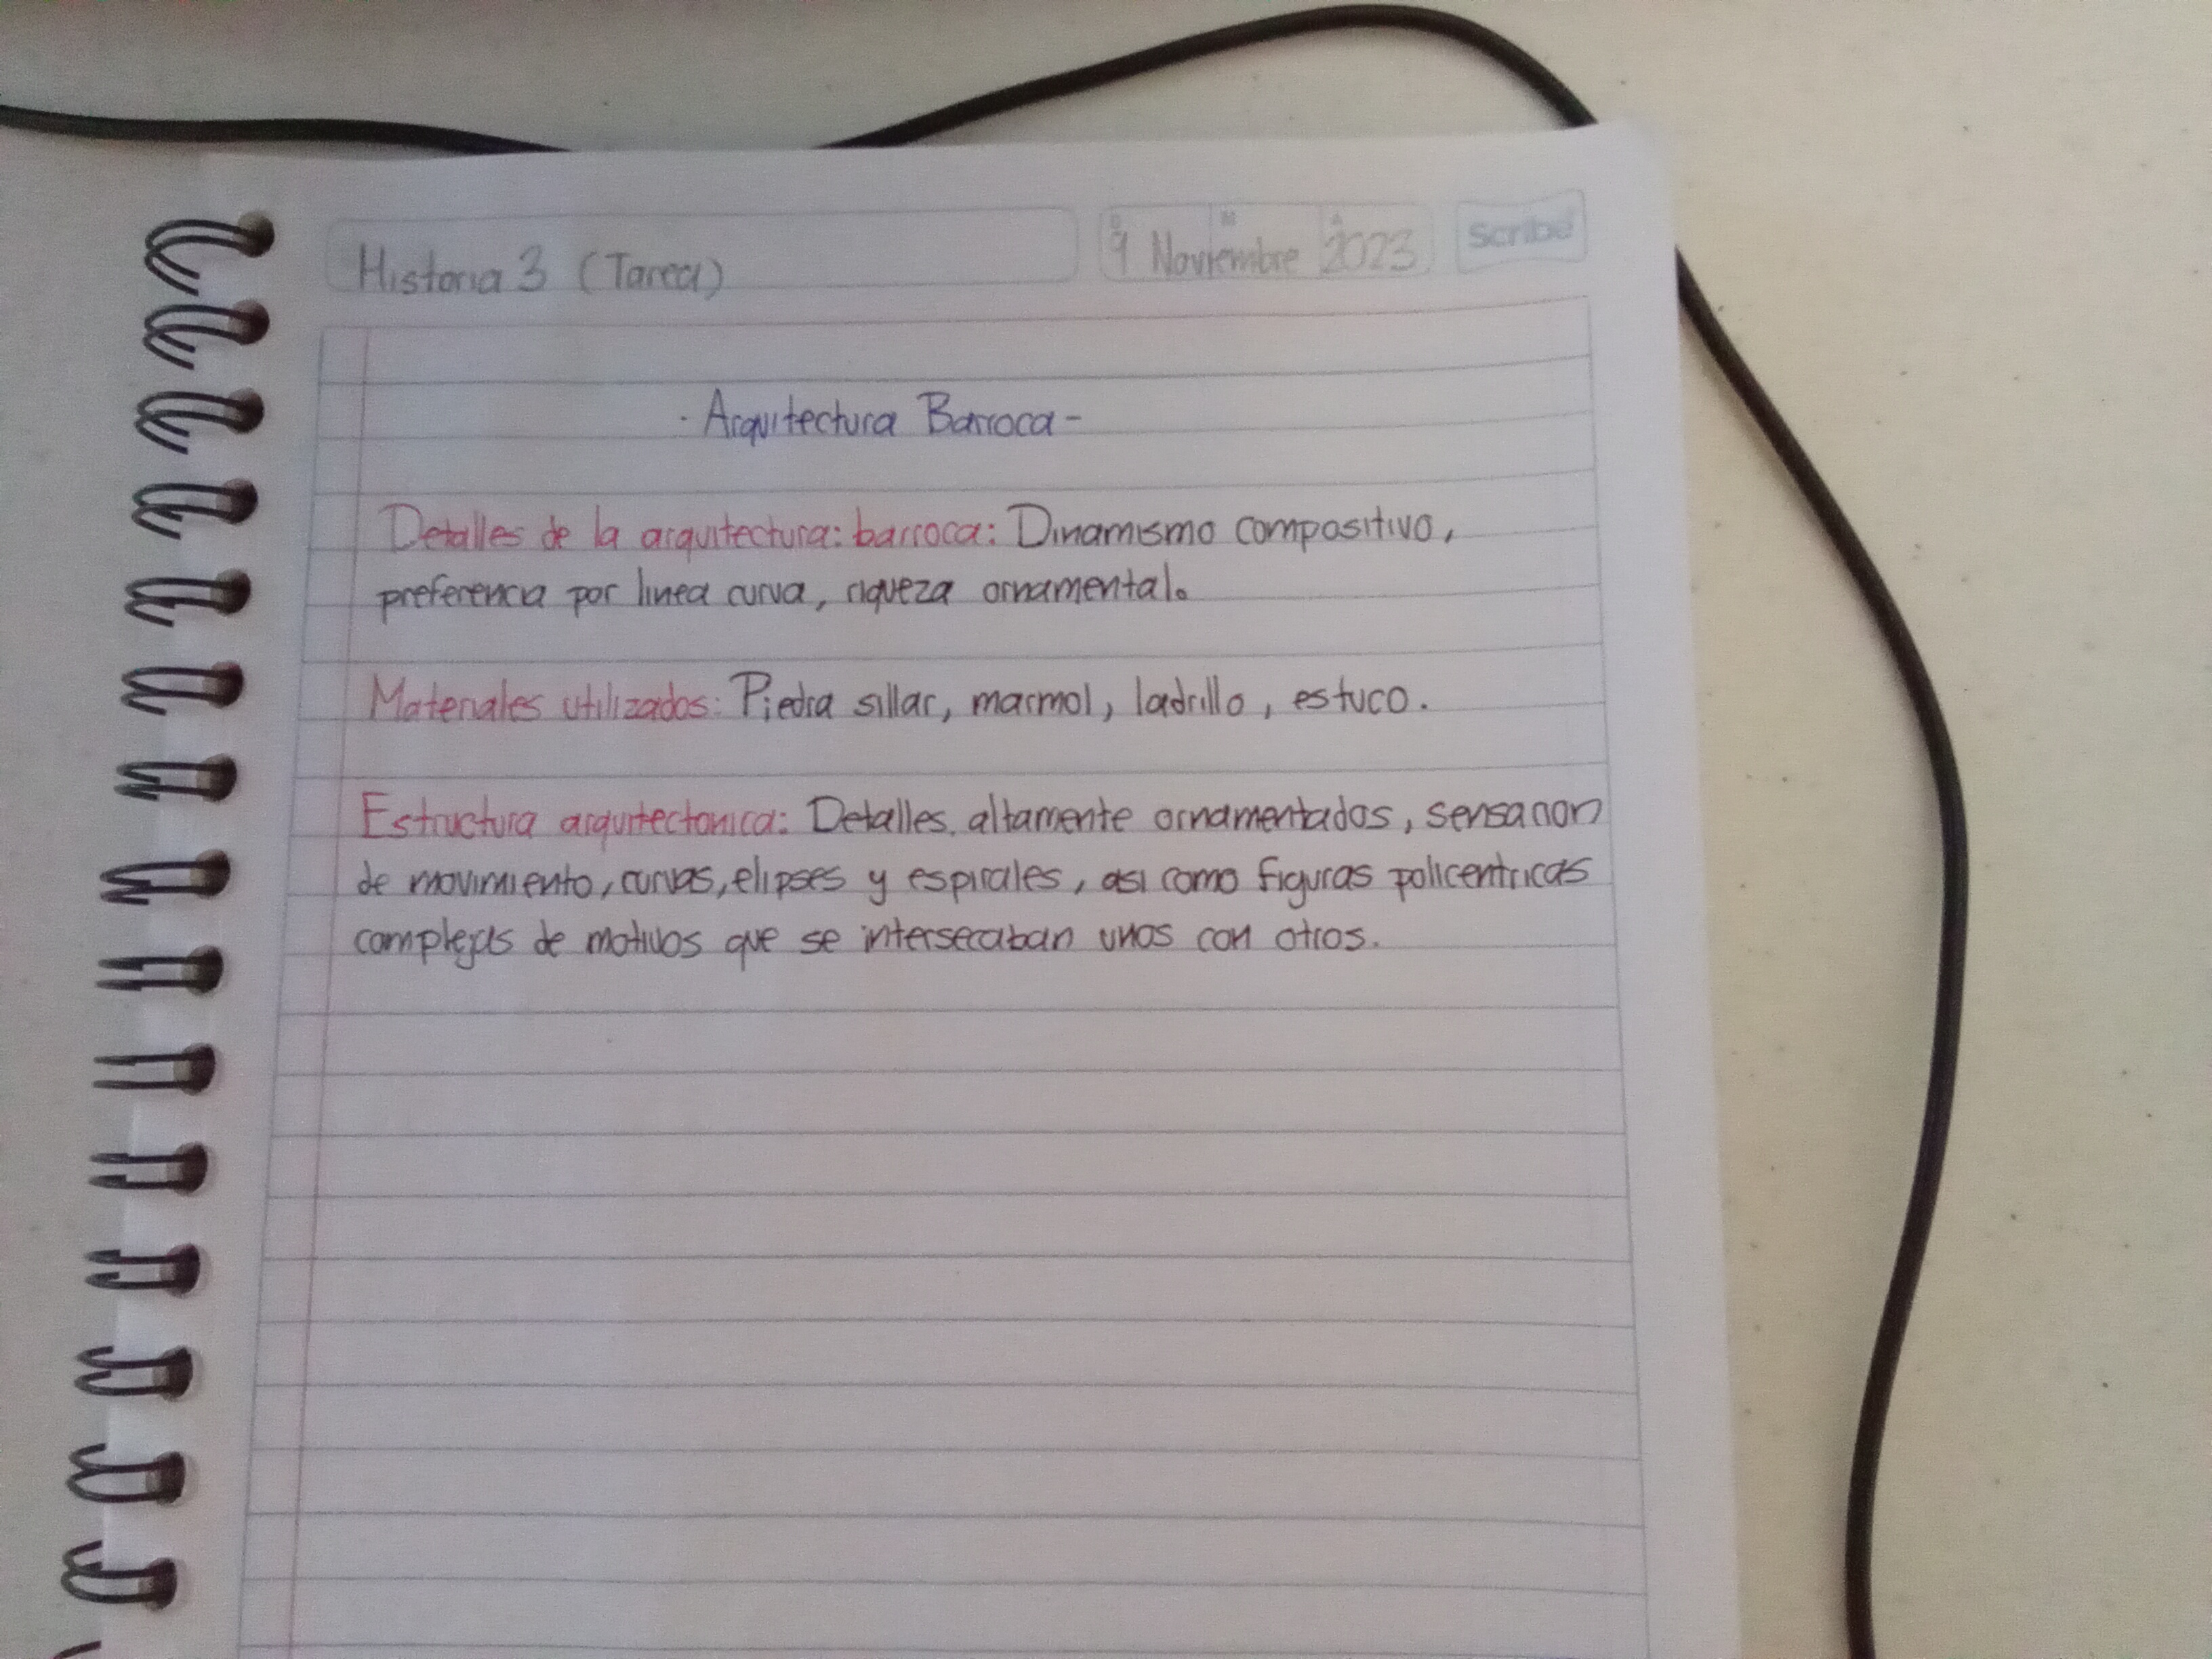 Historia 3 (Tarea)
9 Noviembre 2023
D M A
scribe
- Arquitectura Barroca -
Detalles de la arquitectura: barroca: Dinamismo compositivo,
preferencia por linea curva, riqueza ornamental.
Materiales utilizados: Piedra sillar, marmol, ladrillo, estuco.
Estructura arquitectonica: Detalles altamente ornamentados, sensacion
de movimiento, curvas, elipses y espirales, asi como figuras policentricas
complejas de motivos que se intersecaban unos con otros.